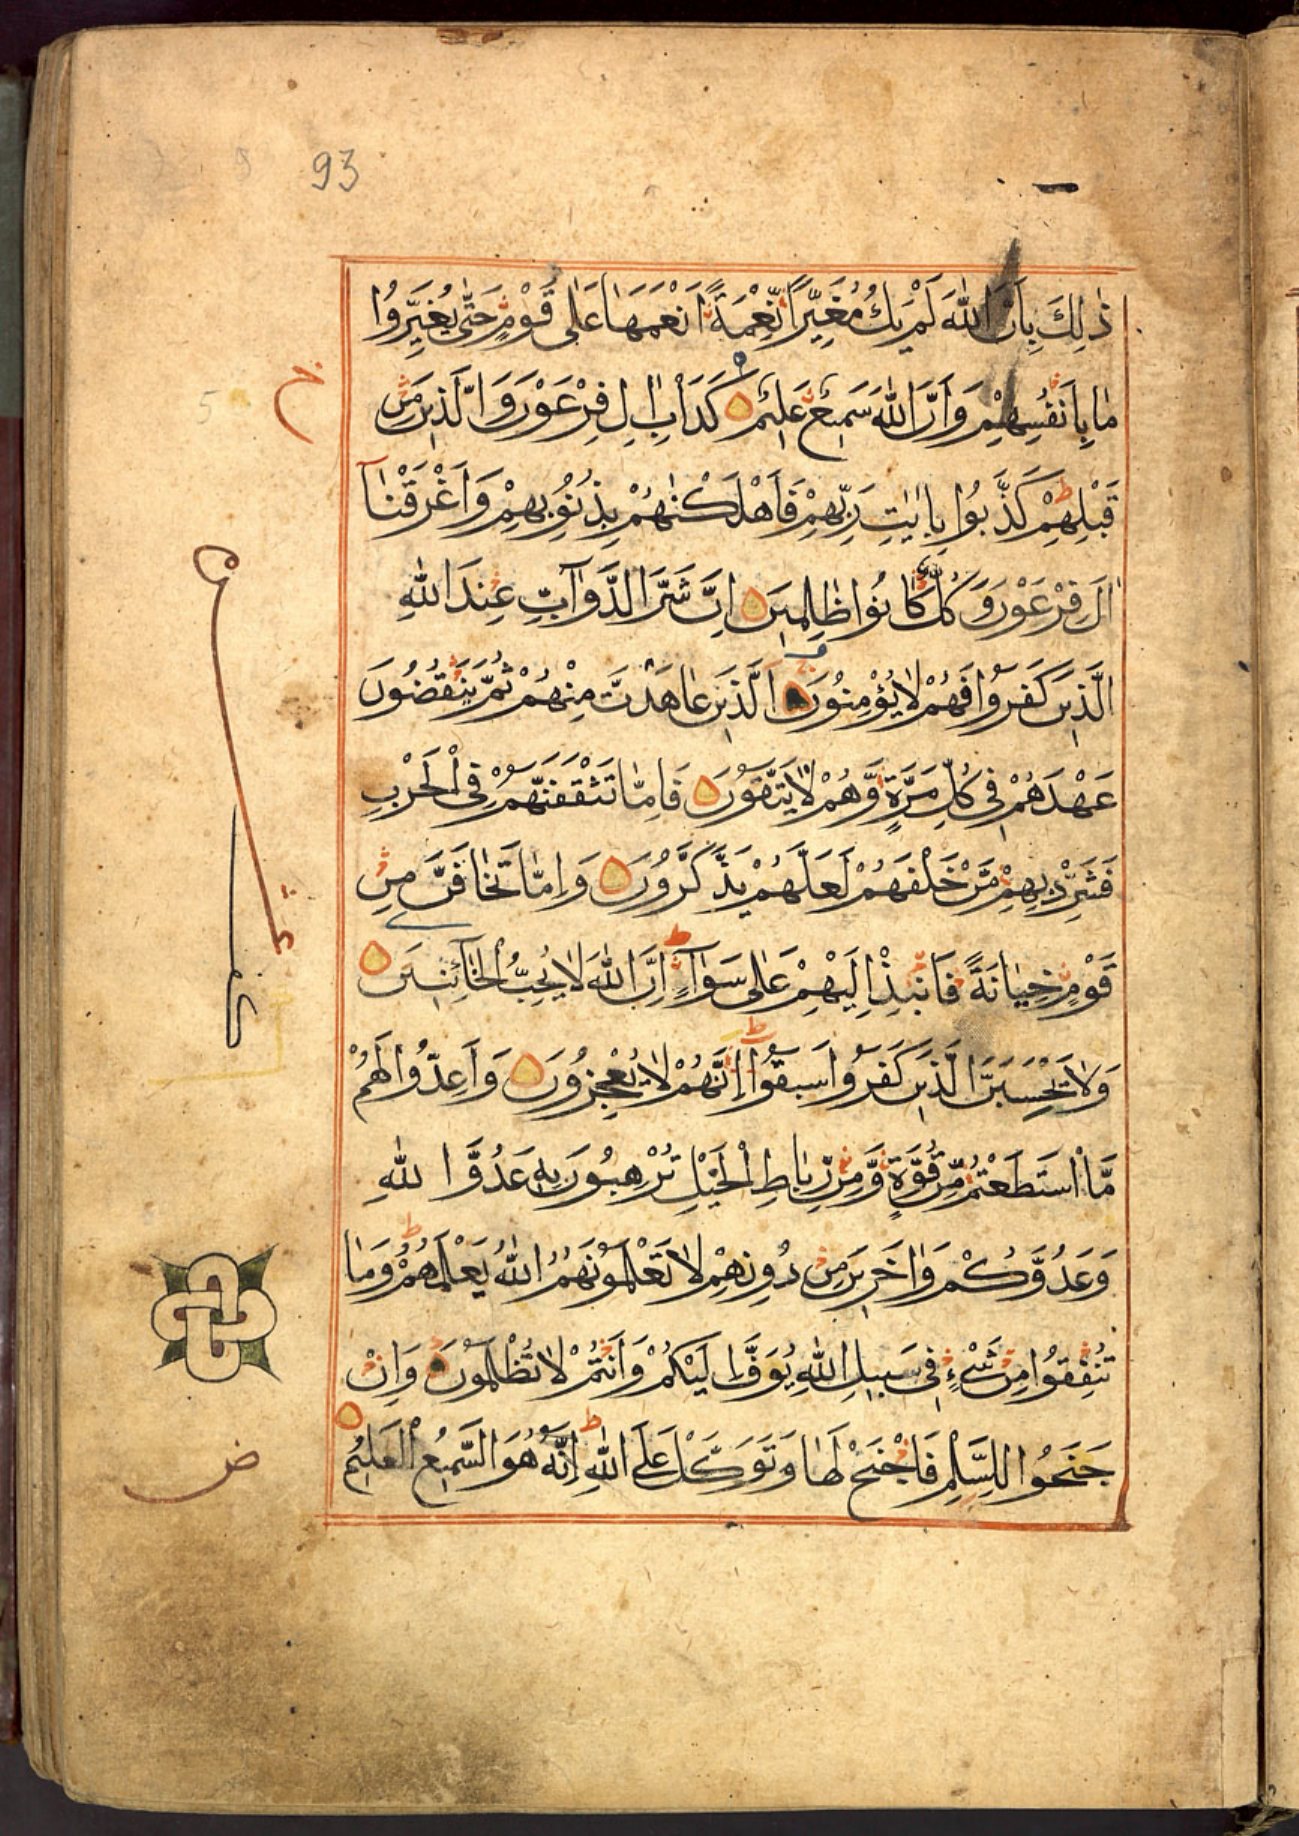 93
ذٰلِكَ بِاَنَّ اللهَ لَمْ يَكُ مُغَيِّرًا نِّعْمَةً اَنْعَمَهَا عَلٰى قَوْمٍ حَتّٰى يُغَيِّرُوْا
مَا بِاَنْفُسِهِمْ وَاَنَّ اللهَ سَمِيْعٌ عَلِيْمٌ كَدَاْبِ اٰلِ فِرْعَوْنَ وَالَّذِيْنَ مِنْ
قَبْلِهِمْ كَذَّبُوْا بِاٰيٰتِ رَبِّهِمْ فَاَهْلَكْنٰهُمْ بِذُنُوْبِهِمْ وَاَغْرَقْنَآ
اٰلَ فِرْعَوْنَ وَكُلٌّ كَانُوْا ظٰلِمِيْنَ اِنَّ شَرَّ الدَّوَآبِّ عِنْدَ اللهِ
الَّذِيْنَ كَفَرُوْا فَهُمْ لَا يُؤْمِنُوْنَ اَلَّذِيْنَ عَاهَدْتَّ مِنْهُمْ ثُمَّ يَنْقُضُوْنَ
عَهْدَهُمْ فِيْ كُلِّ مَرَّةٍ وَّهُمْ لَا يَتَّقُوْنَ فَاِمَّا تَثْقَفَنَّهُمْ فِي الْحَرْبِ
فَشَرِّدْ بِهِمْ مَّنْ خَلْفَهُمْ لَعَلَّهُمْ يَذَّكَّرُوْنَ وَاِمَّا تَخَافَنَّ مِنْ
قَوْمٍ خِيَانَةً فَانْبِذْ اِلَيْهِمْ عَلٰى سَوَآءٍ اِنَّ اللهَ لَا يُحِبُّ الْخَآئِنِيْنَ
وَلَا تَحْسَبَنَّ الَّذِيْنَ كَفَرُوْا سَبَقُوْا اِنَّهُمْ لَا يُعْجِزُوْنَ وَاَعِدُّوْا لَهُمْ
مَّا اسْتَطَعْتُمْ مِّنْ قُوَّةٍ وَّمِنْ رِّبَاطِ الْخَيْلِ تُرْهِبُوْنَ بِهٖ عَدُوَّ اللهِ
وَعَدُوَّكُمْ وَاٰخَرِيْنَ مِنْ دُوْنِهِمْ لَا تَعْلَمُوْنَهُمْ اَللهُ يَعْلَمُهُمْ وَمَا
تُنْفِقُوْا مِنْ شَيْءٍ فِيْ سَبِيْلِ اللهِ يُوَفَّ اِلَيْكُمْ وَاَنْتُمْ لَا تُظْلَمُوْنَ وَاِنْ
جَنَحُوْا لِلسَّلْمِ فَاجْنَحْ لَهَا وَتَوَكَّلْ عَلَى اللهِ اِنَّهٗ هُوَ السَّمِيْعُ الْعَلِيْمُ